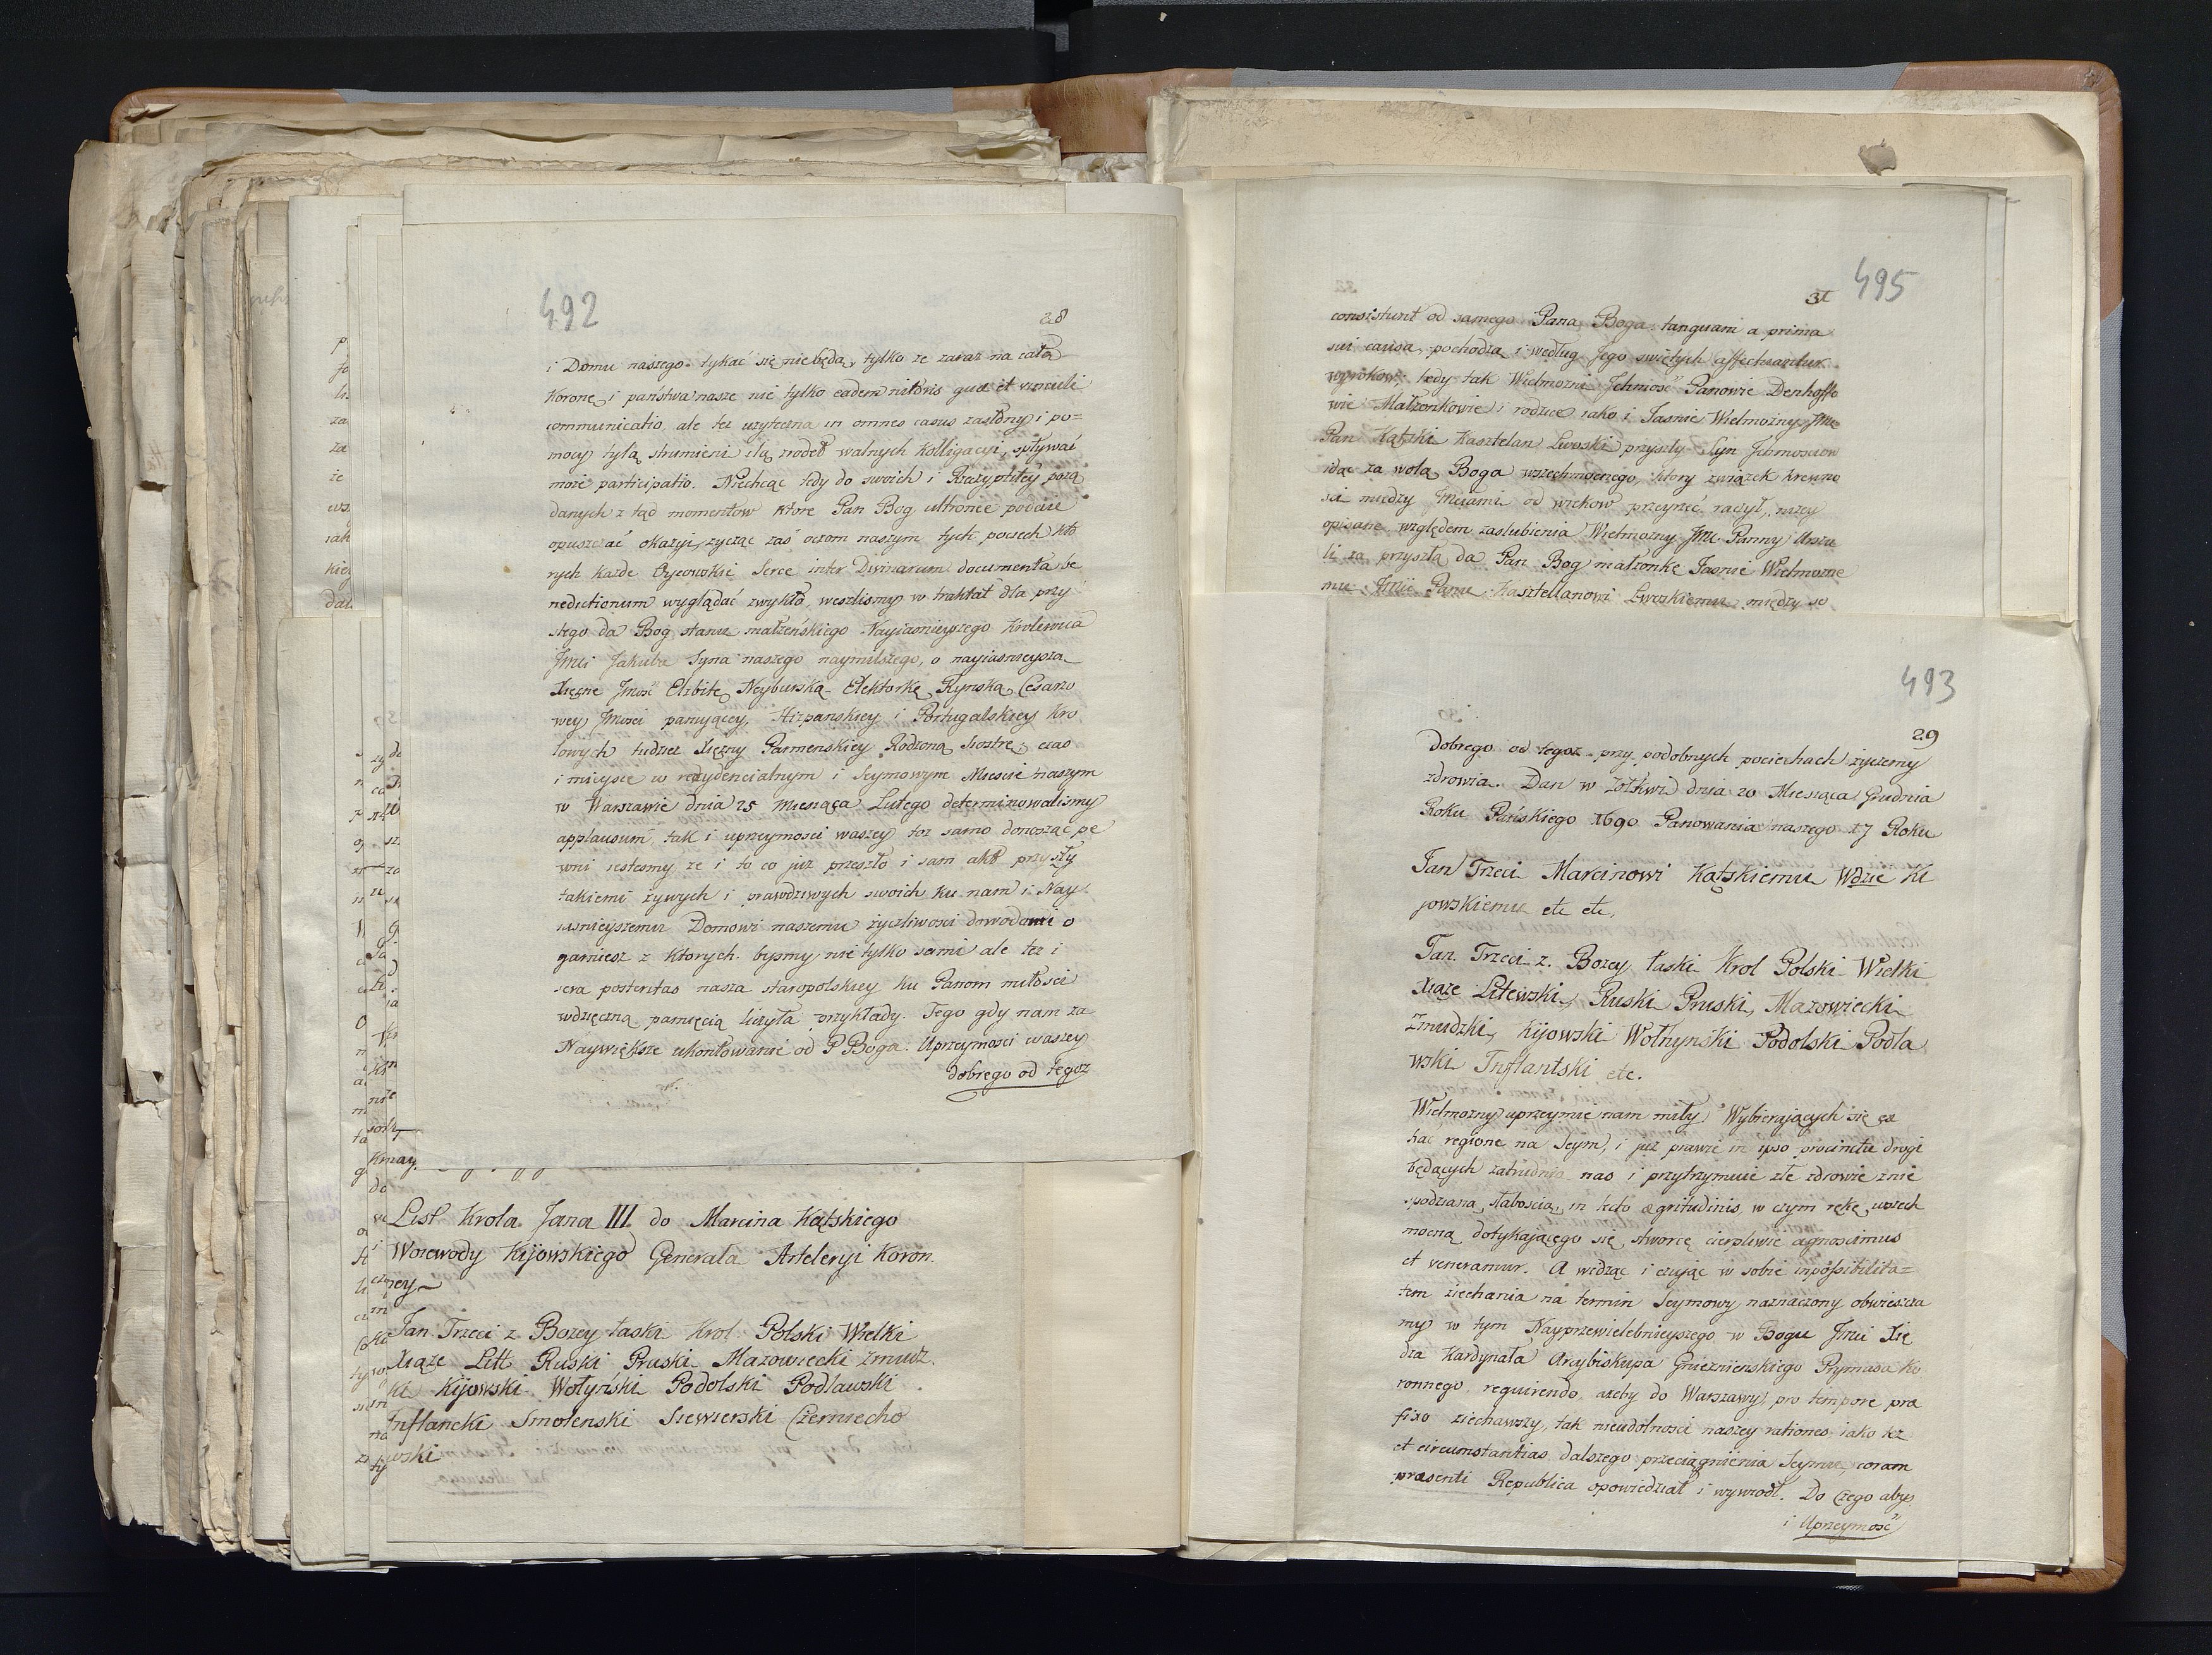 492
28
i Domu naszego tykać się nie będą, tylko ze zaraz na całą
Koronę i państwa nasze nie tylko eadem nitoris quæ et vinculi
communicatio, ale tez uzyteczna in omnes casus zasłony i po=
mocy tylą strumieni ilą zrodeł walnych kolligacyi, spływać
może participatio. Niechcąc tedy do swoich i Rzeczypltey pożą
danych z tąd momentow które Pan Bog ultronee podaie
opuszczać okazyi, zycząc zaś oczom naszym tych pociech któ
rych kazde Oycowskie Serce inter Divinarum documenta be
nedictionum wyglądać zwykło, weszlismy w traktat dla przy
stego da Bog stanu małżeńskiego Nayiasnieyszego Krolewica
Jmci Jakuba Syna naszego naymilszego, o nayiasnieyszą
Xięzne Jmość Elzbitę Neyburską Elektorkę Rynską Cesarzo
wey Jmosci panuiącey, Hizpanskiey i Portugalskiey Kro
lowych tudziez Xięzny Parmenskiey Rodzoną siostrę; czas
i mieysce w rezydencialnym i Seymowym Miescie naszym
w Warszawie dnia 25 miesiąca Lutego determinowalismy
applausum, tak i uprzeymosci waszey toz samo donosząc pe
wni iestesmy ze i to co już przeszło i sam akt przyszły
takiemi zywych i prawdziwych swoich ku nam i Nay
iasnieyszemu Domowi naszemu życzliwosci dowodami o
garniesz z których bysmy nie tylko sami ale tez i
sera posteritas nasza staropolskiey ku Panom miłosci
wdzięczną pamięcią liczyła przykłady. Tego gdy nam za
Naywiększe ukontowanie od P Boga. Uprzeymosci waszey
dobrego od tegoz
List Krola Jana III do Marcina Kątskiego
Woiewody Kijowskiego Generała Arteleryi Koron.
ney
Jan Trzeci z Bozey łaski Krol Polski Wielki
Xiąze Litt Ruski Pruski Mazowiecki Zmudz.
ki Kijowski Wołyński Podolski Podlawski
Inflancki Smolenski Siewierski Czerniecho
wski
31 495
consistunt od samego Pana Boga tanquam a prima
sui causa, pochodzą i według Jego swiętych affectuantur
wyrokow, tedy tak Wielmożni Ichmość Panowie Denhoffo
wie Małżonkowie i rodzice iako i Jasnie Wielmożny Jmc
Pan Kątski Kasztelan Lwoski przyszły Syn Jchmosciow
idąc za wolą Boga wszechmocnego, ktory związek krewno
sci miedzy Jmciami od wiekow przeyrzeć raczył, nizey
opisane względem zaslubienia Wielmozny Jmc Panny Urszu
li za przyszłą da Pan Bog małżonkę Jasnie Wielmozne
mu Jmci Panu Kasztellanowi Lwoskiemu między so
493
29
dobrego od tegoz przy podobnych pociechach życzemy
zdrowia. Dan w Zołkwi dnia 20 Miesiąca Grudnia
Roku Pańskiego 1690 Panowania naszego 17 Roku
Jan Trzeci Marcinowi Kątskiemu Wdzie Ki
jowskiemu etc etc.
Jan Trzeci z Bozey łaski Krol Polski Wielki
Xiąze Litewski, Ruski Pruski, Mazowiecki
Zmudzki, Kijowski Wołhynski Podolski Podla
wski Inflantski etc.
Wielmozny uprzeymie nam miły! Wybieraiących się ex
hac regione na Seym, i już prawie in ipso procinctu drogi
będących zatrudnia nas i przytrzymuie złe zdrowie z nie
spodzianą słaboscią, in lecto ægritudinis, w czym rękę wszech
mocną dotykaiącego się, stworcę cierpliwie agnoscimus
et veneramur. A widząc i czuiąc w sobie inpossibilita=
tem ziechania na termin Seymowy naznaczony obwieszcza
my w tym Nayprzewielebnieyszego w Bogu Jmci Xię
dza Kardynała Arcybiskupa Gnieznienskiego Prymasa Ko
ronnego, requirendo, azeby do Warszawy, pro tempore præ
fixo ziechawszy, tak nieudolnosci naszey rationes iako tez
et circumstantias dalszego przeciągnienia Seymu, coram
præsenti Republica opowiedział i wywiodł. Do Czego abyś
i Uprzeymość